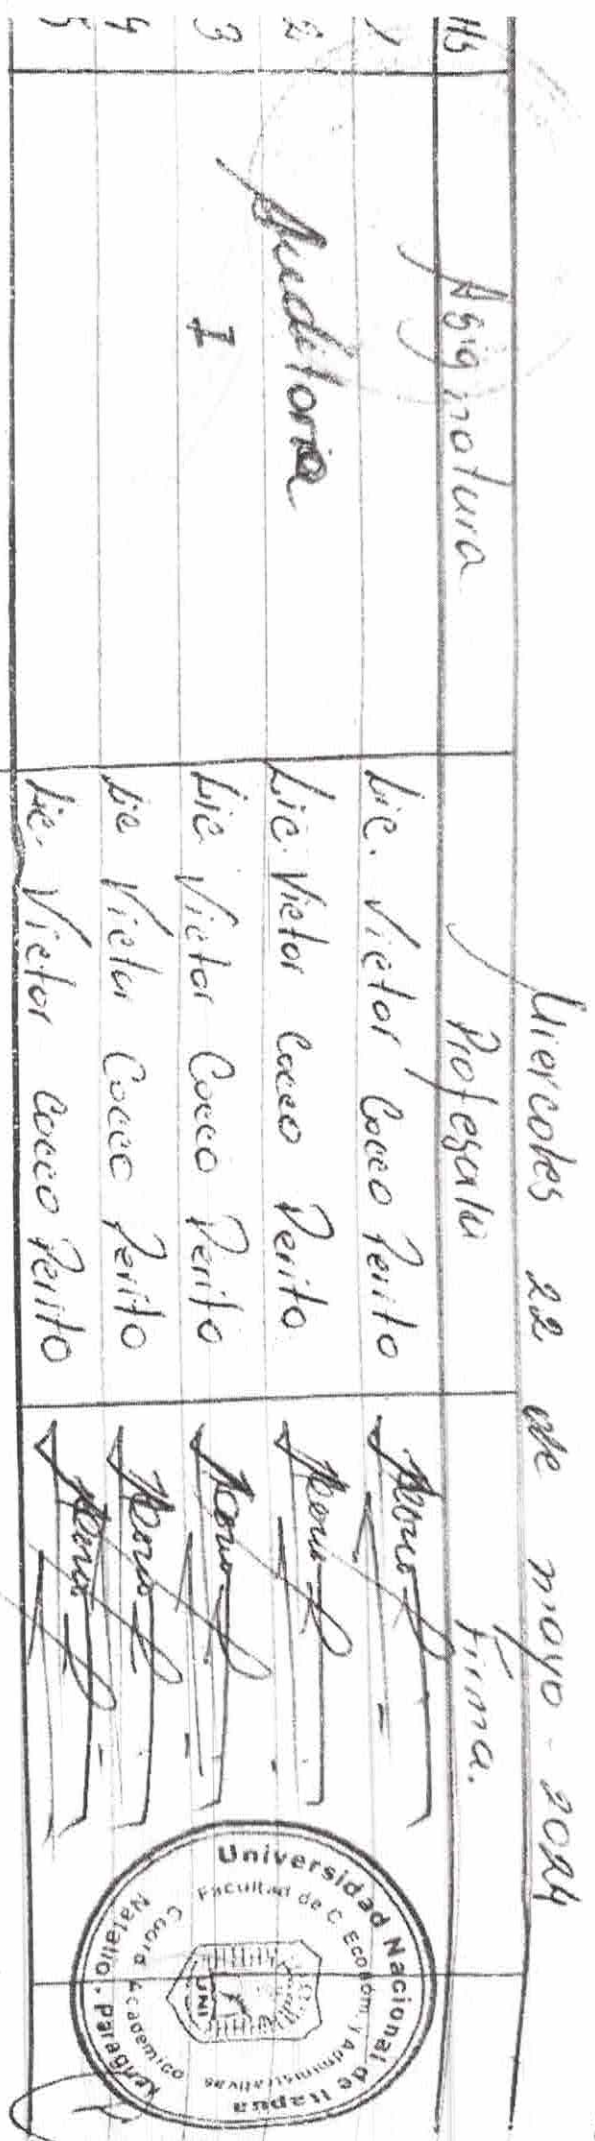 Miercoles 22 de mayo - 2024
Hs Asignatura Profesor/a Firma.
1 Lic. Victor Cocco Perito
2 Auditoria Lic. Victor Cocco Perito
3 I Lic. Victor Cocco Perito
4 Lic Victor Cocco Perito
5 Lic. Victor Cocco Perito
Universidad Nacional de Itapua
Facultad de C. Económ. y Administrativas
Coord. Academico
UNI
Natalio - Paraguay